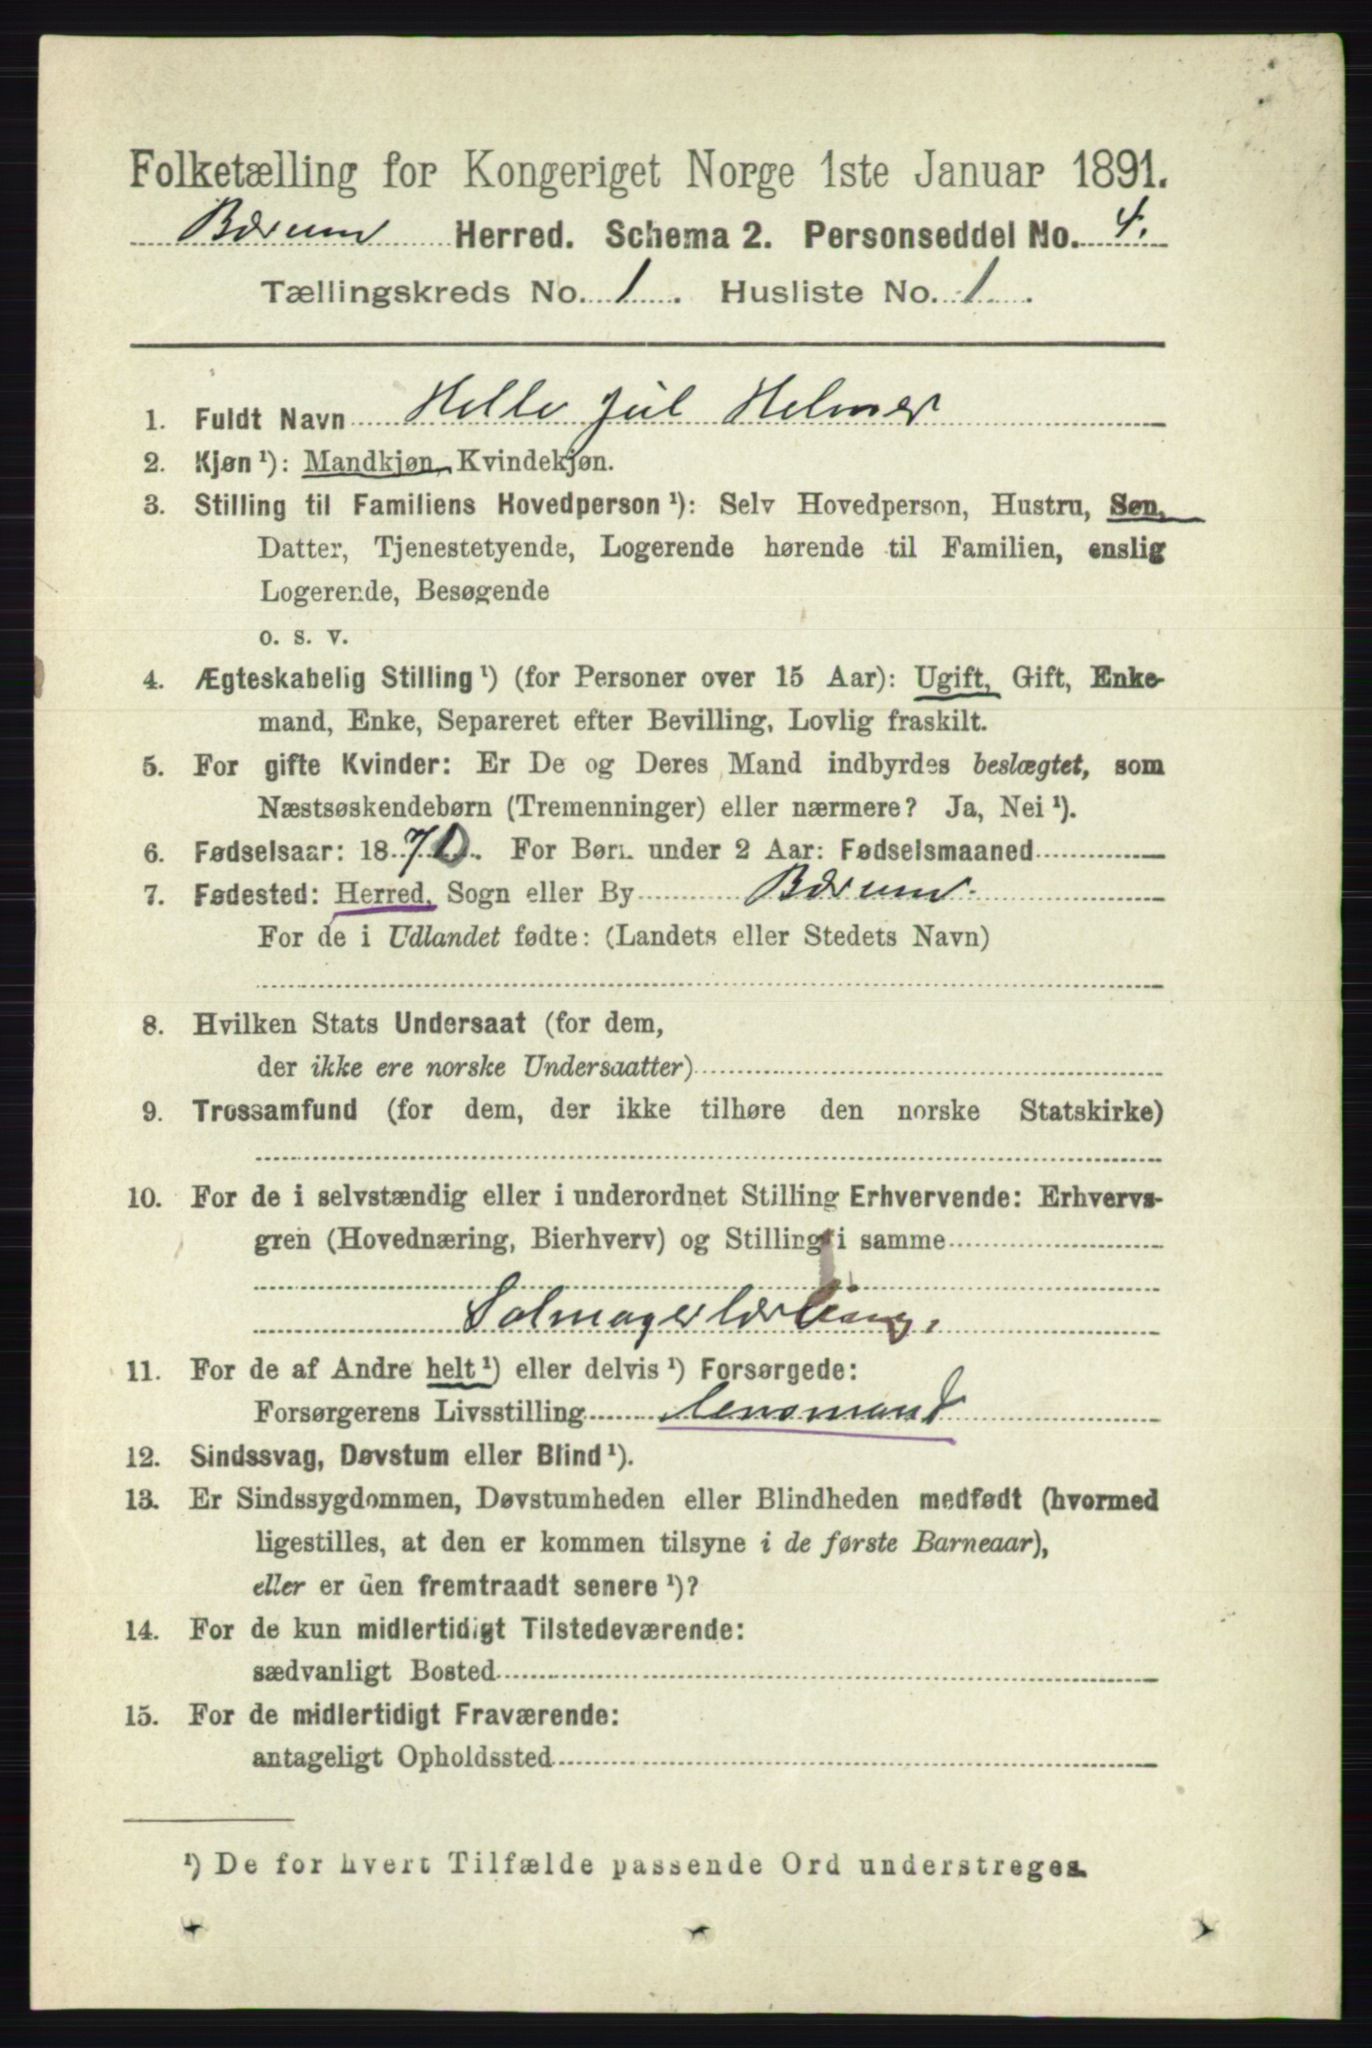 Folketælling for Kongeriget Norge 1ste Januar 1891.
Bærum Herred. Schema 2. Personseddel No. 4.
Tællingskreds No. 1. Husliste No. 1.
1. Fuldt Navn Helle Jul Helmer
2. Kjøn ¹): Mandkjøn, Kvindekjøn.
3. Stilling til Familiens Hovedperson ¹): Selv Hovedperson, Hustru, Søn,
Datter, Tjenestetyende, Logerende hørende til Familien, enslig
Logerende, Besøgende
o. s. v.
4. Ægteskabelig Stilling ¹) (for Personer over 15 Aar): Ugift, Gift, Enke-
mand, Enke, Separeret efter Bevilling, Lovlig fraskilt.
5. For gifte Kvinder: Er De og Deres Mand indbyrdes beslægtet, som
Næstsøskendebørn (Tremenninger) eller nærmere? Ja, Nei ¹).
6. Fødselsaar: 1870. For Børn under 2 Aar: Fødselsmaaned
7. Fødested: Herred, Sogn eller By Bærum.
For de i Udlandet fødte: (Landets eller Stedets Navn)
8. Hvilken Stats Undersaat (for dem,
der ikke ere norske Undersaatter)
9. Trossamfund (for dem, der ikke tilhøre den norske Statskirke)
10. For de i selvstændig eller i underordnet Stilling Erhvervende: Erhvervs-
gren (Hovednæring, Bierhverv) og Stilling i samme
Salmagerlærling.
11. For de af Andre helt ¹) eller delvis ¹) Forsørgede:
Forsørgerens Livsstilling lensmand
12. Sindssvag, Døvstum eller Blind ¹).
13. Er Sindssygdommen, Døvstumheden eller Blindheden medfødt (hvormed
ligestilles, at den er kommen tilsyne i de første Barneaar),
eller er den fremtraadt senere ¹)?
14. For de kun midlertidigt Tilstedeværende:
sædvanligt Bosted
15. For de midlertidigt Fraværende:
antageligt Opholdssted
¹) De for hvert Tilfælde passende Ord understreges.